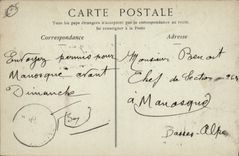 CARTE POSTALE
Tous les pays étrangers n'acceptent pas la correspondance au recto.
Se renseigner à la Poste
Correspondance
Adresse
Envoyez permis pour
Manosque avant
Dimanche
Monsieur Benoit
Chef de Section
à Manosque
Basses-Alpes